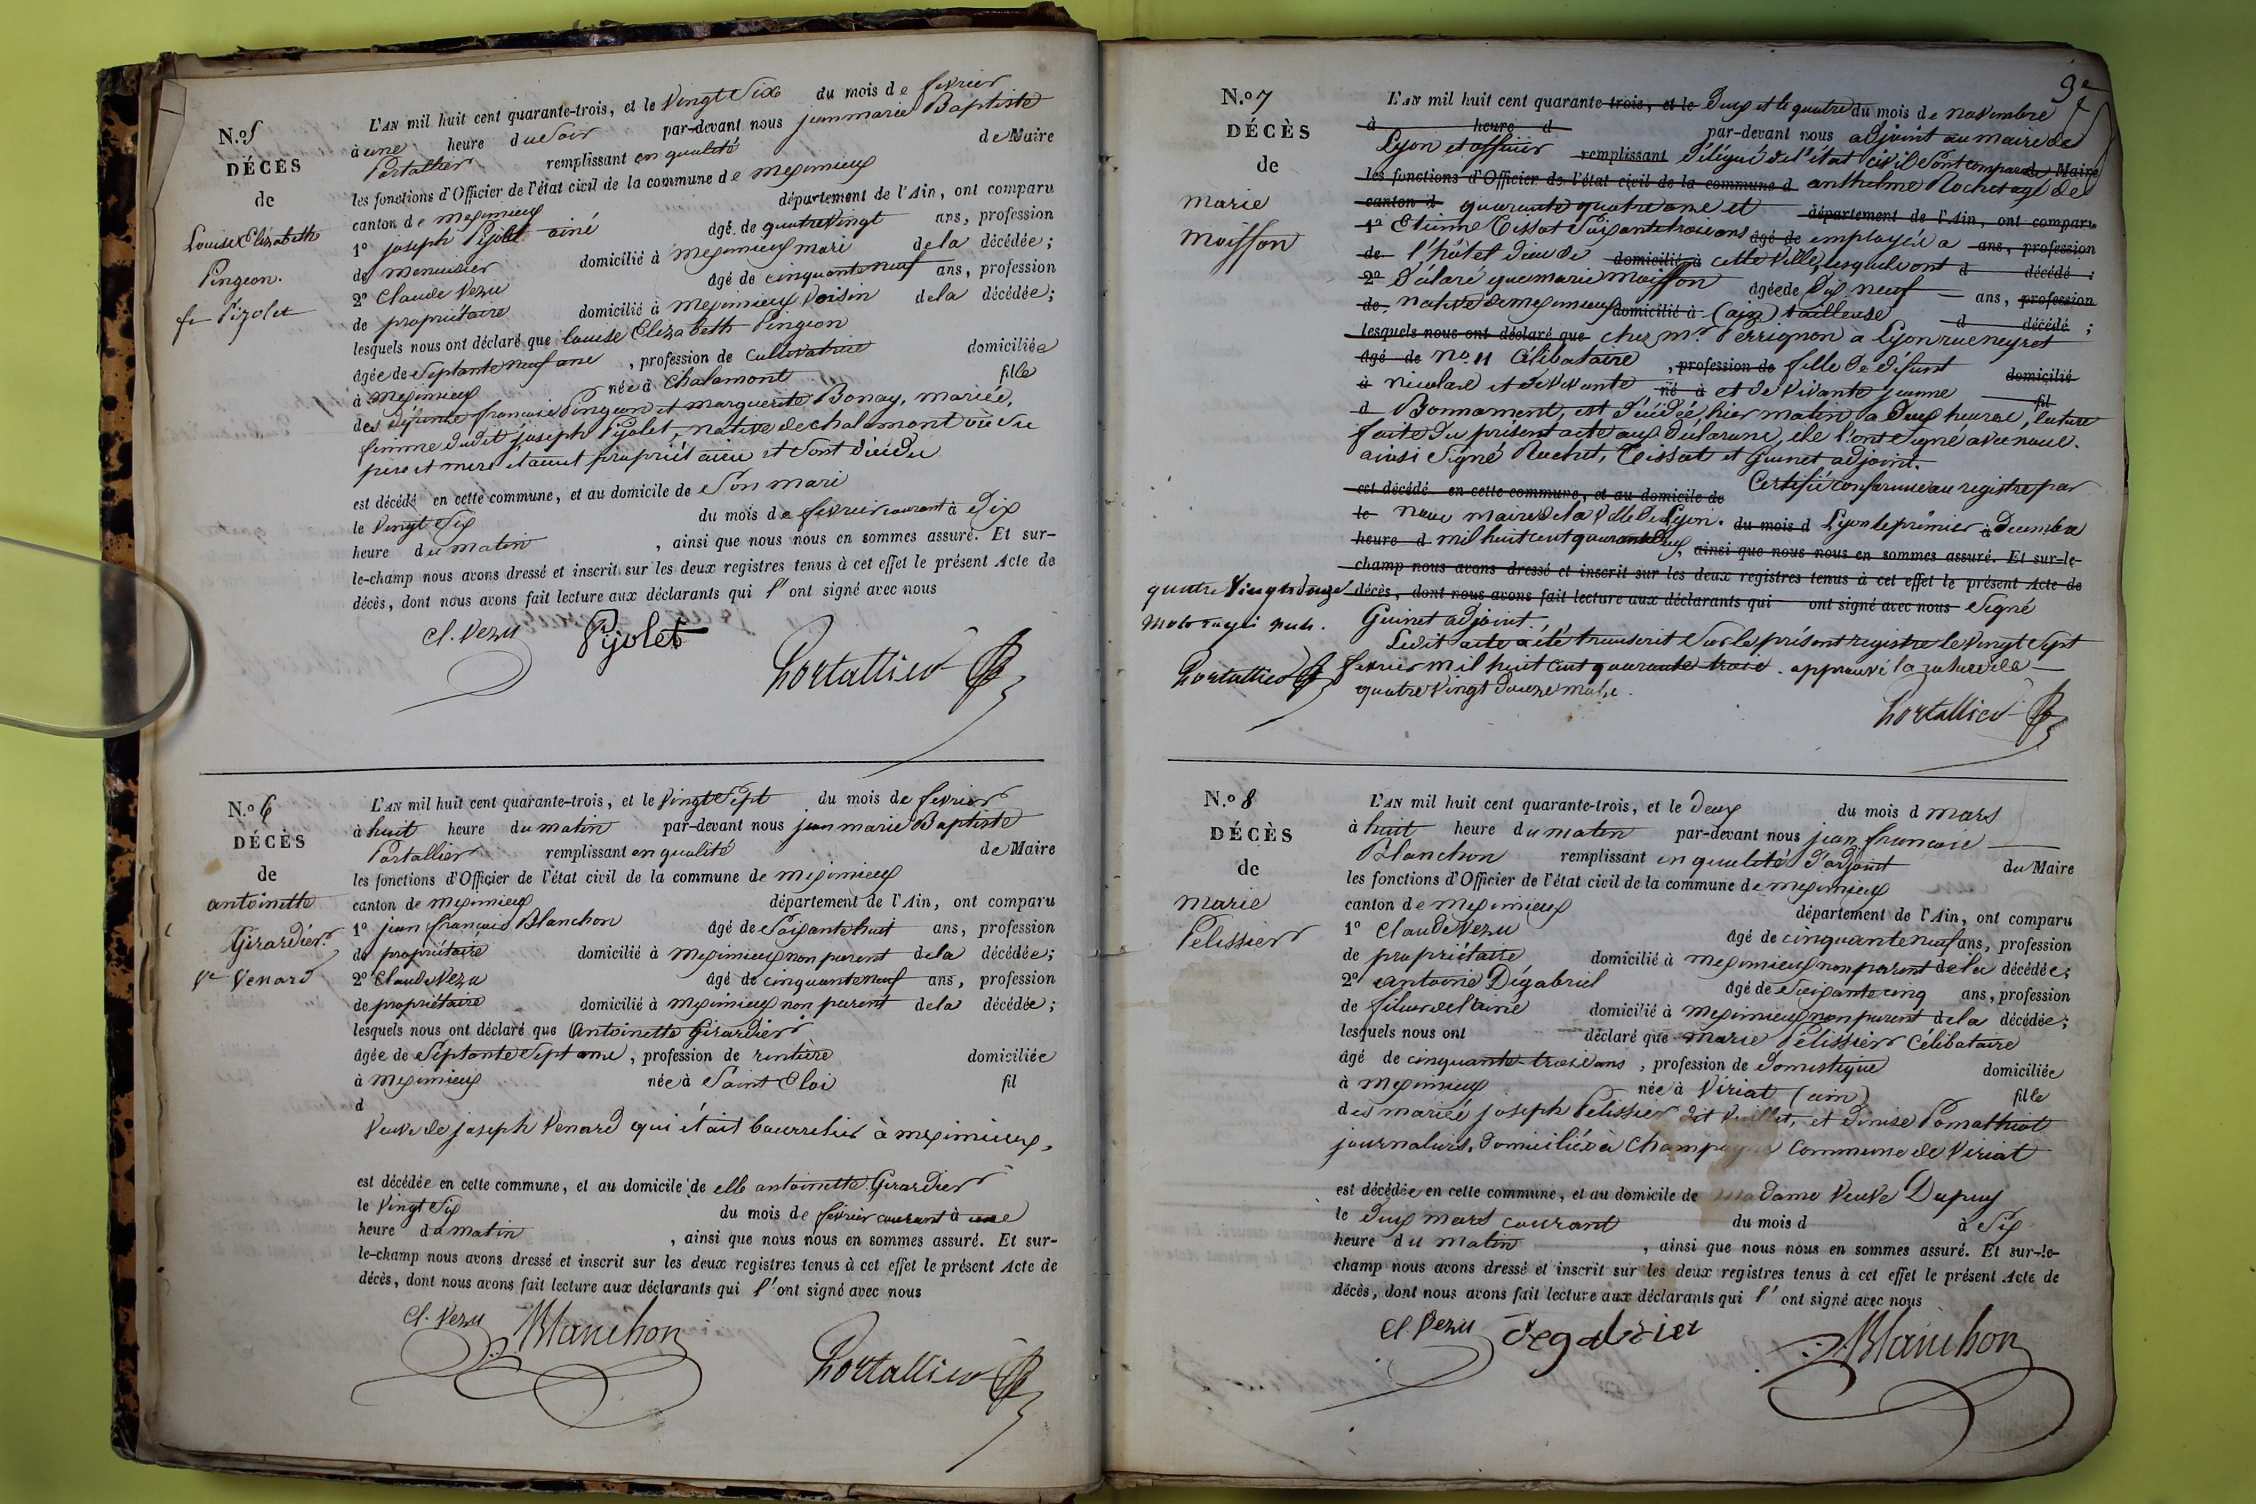 N.o 5
DÉCÈS
de
Louise Elizabeth
Pingeon.
fe Pijolet
L'AN mil huit cent quarante-trois, et le vingt six du mois de fevrier
à une heure du soir par-devant nous jean marie Baptiste
Portallier remplissant en qualité de Maire
les fonctions d'Officier de l'état civil de la commune de meximieux
canton de meximieux département de l'Ain, ont comparu
1o joseph Pijolet ainé agé de quatre vingt ans, profession
de menuisier domicilié à meximieux mari de la décédée;
2o Claude Vezu agé de cinquante neuf ans, profession
de propriétaire domicilié à meximieux voisin de la décédée;
lesquels nous ont déclaré que louise Elizabeth Pingeon
agée de septante neuf ans, profession de cultivatrice domiciliée
à meximieux née à Chalamont fille
des défunts françois Pingeon et marguerite Bonay, mariée,
femme dudit joseph Pijolet, native de chalamont où ses
père et mère étaient propriétaires et sont décédés
est décédé en cette commune, et au domicile de son mari
le vingt six du mois de fevrier courant à dix
heure du matin, ainsi que nous nous en sommes assuré. Et sur-
le-champ nous avons dressé et inscrit sur les deux registres tenus à cet effet le présent Acte de
décès, dont nous avons fait lecture aux déclarants qui l'ont signé avec nous
cl. Vezu Pijolet
Portallier
N.o 6
DÉCÈS
de
antoinette
Girardier
ve Venard
L'AN mil huit cent quarante-trois, et le vingt sept du mois de fevrier
à huit heure du matin par-devant nous jean marie Baptiste
Portallier remplissant en qualité de Maire
les fonctions d'Officier de l'état civil de la commune de meximieux
canton de meximieux département de l'Ain, ont comparu
1o jean françois Blanchon agé de soixante huit ans, profession
de propriétaire domicilié à meximieux non parent de la décédée;
2o Claude Vezu agé de cinquante neuf ans, profession
de propriétaire domicilié à meximieux non parent de la décédée;
lesquels nous ont déclaré que Antoinette Girardier
agée de septante sept ans, profession de rentière domiciliée
à meximieux née à Saint Eloi fil
d
veuve de joseph Venard qui était bourrelier à meximieux,
est décédée en cette commune, et au domicile de elle antoinette Girardier
le vingt six du mois de fevrier courant à une
heure du matin, ainsi que nous nous en sommes assuré. Et sur-
le-champ nous avons dressé et inscrit sur les deux registres tenus à cet effet le présent Acte de
décès, dont nous avons fait lecture aux déclarants qui l'ont signé avec nous
cl. Vezu Blanchon
Portallier
9e
N.o 7
DÉCÈS
de
marie
Moisson
L'AN mil huit cent quarante trois, et le deux et le quatre du mois de novembre
à heure d par-devant nous adjoint au maire de
Lyon et officier remplissant délégué de l'état civil sont comparus de Maire
les fonctions d'Officier de l'état civil de la commune d anthelme Rochet agé de
canton d quarante quatre ans et département de l'Ain, ont comparu
1o Etienne Tissot soixante trois ans agé de employés a ans, profession
de l'hôtel dieu de domicilié à cette ville, lesquels ont d décédé;
2o déclaré que marie Moisson agée de dix neuf ans, profession
de native de meximieux domicilié à (ain) tailleuse d décédé;
lesquels nous ont déclaré que chez mr Perrignon à Lyon rue neyret
agé de no 11 Célibataire, profession de fille de défunt domicilié
à nicolas et de vivante né à et de vivante jeanne fil
d Bonnament, est décédée, hier matin à deux heures, lecture
faite du présent acte aux déclarans, ils l'ont signé avec nous.
ainsi signé Rochet, Tissot et Guinet adjoint.
est décédé en cette commune, et au domicile de Certifié conforme au registre par
le nous maire de la ville de Lyon. du mois d Lyon le prémier à decembre
heure d mil huit cent quarante deux, ainsi que nous nous en sommes assuré. Et sur-le-
champ nous avons dressé et inscrit sur les deux registres tenus à cet effet le présent Acte de
décès, dont nous avons fait lecture aux déclarants qui ont signé avec nous signé
Guinet adjoint.
Ledit acte a été transcrit sur le présent registre le vingt sept
fevrier mil huit cent quarante trois. approuvé la rature de
quatre vingt douze mots.
quatre vingts douze
mots rayés nuls.
Portallier
Portallier
N.o 8
DÉCÈS
de
marie
Pelissier
L'AN mil huit cent quarante-trois, et le deux du mois d mars
à huit heure du matin par-devant nous jean françois
Blanchon remplissant en qualité d'adjoint du Maire
les fonctions d'Officier de l'état civil de la commune de meximieux
canton de meximieux département de l'Ain, ont comparu
1o Claude Vezu agé de cinquante neuf ans, profession
de propriétaire domicilié à meximieux non parent de la décédée;
2o antoine Dégabriel agé de soixante cinq ans, profession
de fileur de laine domicilié à meximieux non parent de la décédée;
lesquels nous ont déclaré que marie Pelissier Célibataire
agé de cinquante trois ans, profession de domestique domiciliée
à meximieux née à Viriat (ain) fille
des mariés joseph Pelissier dit Vuillet, et denise Pomathiot
journaliers, domiciliés à Champagne commune de Viriat
est décédée en cette commune, et au domicile de madame veuve Dupuy
le deux mars courant du mois d à six
heure du matin, ainsi que nous nous en sommes assuré. Et sur-le-
champ nous avons dressé et inscrit sur les deux registres tenus à cet effet le présent Acte de
décès, dont nous avons fait lecture aux déclarants qui l'ont signé avec nous
cl. Vezu Degabriel
Blanchon